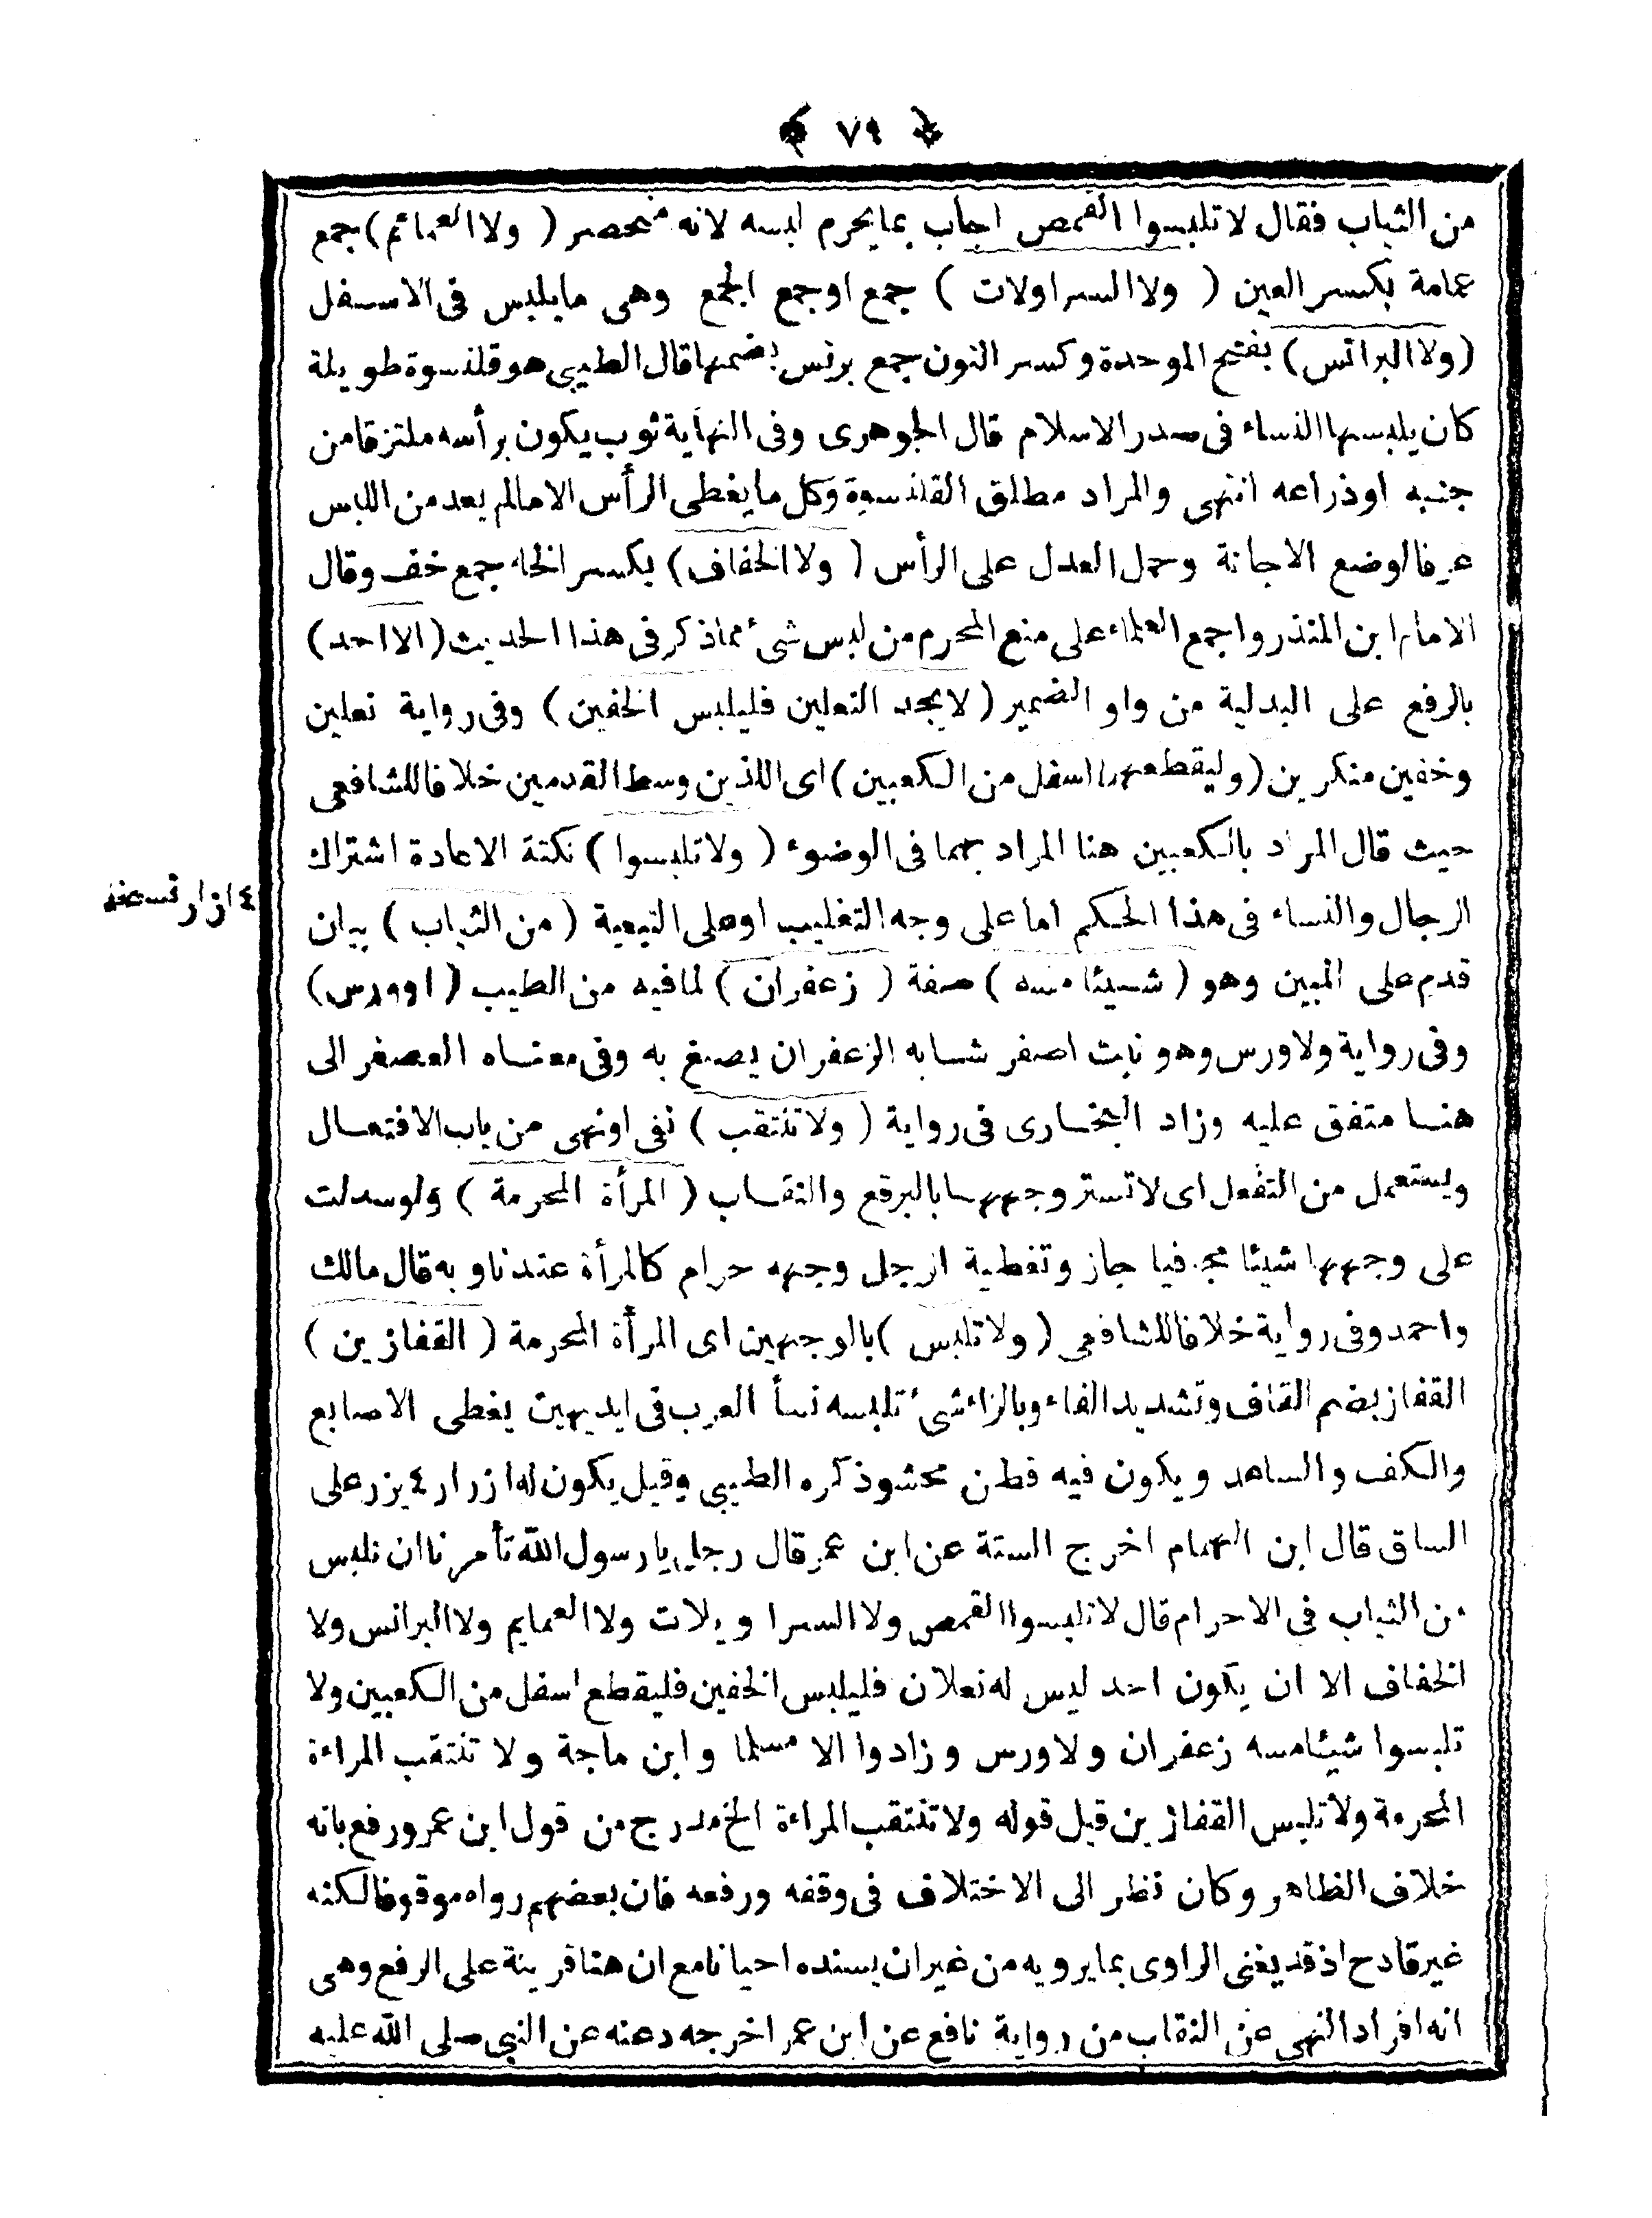 ﴿ ٧٩ ﴾
من الثياب فقال لا تلبسوا القمص اجاب بما يحرم لبسه لانه منحصر ( ولا العمائم ) جمع
عمامة بكسر العين ( ولا السراولات ) جمع او جمع الجمع وهى مايلبس فى الاسفل
( ولا البرانس ) بفتح الموحدة وكسر النون جمع برنس بضمها قال الطيبى هو قلنسوة طويلة
كان يلبسها النساء فى صدر الاسلام قال الجوهرى وفى النهاية ثوب يكون برأسه ملتزقا من
جنبه او ذراعه انتهى والمراد مطلق القلنسوة وكل ما يغطى الرأس الا مالم يعد من اللبس
عرفا لوضع الاجانة وحمل العدل على الرأس ( ولا الخفاف ) بكسر الخاء جمع خف وقال
الامام ابن المنذر واجمع العلماء على منع المحرم من لبس شئ مماذكر فى هذا الحديث ( الا احد )
بالرفع على البدلية من واو الضمير ( لا يجد النعلين فليلبس الخفين ) وفى رواية نعلين
وخفين منكرين ( وليقطعهما اسفل من الكعبين ) اى اللذين وسط القدمين خلافا للشافعى
حيث قال المراد بالكعبين هنا المراد بهما فى الوضوء ( ولا تلبسوا ) نكتة الاعادة اشتراك
الرجال والنساء فى هذا الحكم اما على وجه التغليب او على التبعية ( من الثياب ) بيان
قدم على المبين وهو ( شيئا مسه ) صفة ( زعفران ) لما فيه من الطيب ( اوورس )
وفى رواية ولا ورس وهو نبت اصفر شابه الزعفران يصبغ به وفى معناه العصفر الى
هنا متفق عليه وزاد البخارى فى رواية ( ولا تنتقب ) نفى او نهى من باب الافتعال
ويستعمل من التفعل اى لا تستر وجهها بالبرقع والنقاب ( المرأة المحرمة ) ولو سدلت
على وجهها شيئا مجافيا جاز وتغطية الرجل وجهه حرام كالمرأة عندنا وبه قال مالك
واحمد وفى رواية خلافا للشافعى ( ولا تلبس ) بالوجهين اى المرأة المحرمة ( القفازين )
القفاز بضم القاف وتشديد الفاء وبالزاء شئ تلبسه نسأ العرب فى ايديهن يغطى الاصابع
والكف والساعد ويكون فيه قطن محشو ذكره الطيبى وقيل يكون له ازرار ٤ يزر على
٤ ازار نسخه
الساق قال ابن الهمام اخرج الستة عن ابن عمر قال رجل يا رسول الله تأمرنا ان نلبس
من الثياب فى الاحرام قال لا تلبسوا القمص ولا السراويلات ولا العمايم ولا البرانس ولا
الخفاف الا ان يكون احد ليس له نعلان فليلبس الخفين فليقطع اسفل من الكعبين ولا
تلبسوا شيئا مسه زعفران ولا ورس وزادوا الا مسلما وابن ماجة ولا تنتقب المراءة
المحرمة ولا تلبس القفازين قبل قوله ولا تنتقب المراءة الخ مدرج من قول ابن عمر ورفع بانه
خلاف الظاهر وكان نظر الى الاختلاف فى وقفه ورفعه فان بعضهم رواه موقوفا لكنه
غير قادح اذ قد يفتى الراوى بما يرويه من غير ان يسنده احيانا مع ان هنا قرينة على الرفع وهى
انه افراد النهى عن النقاب من رواية نافع عن ابن عمر اخرجه دعنه عن النبى صلى الله عليه